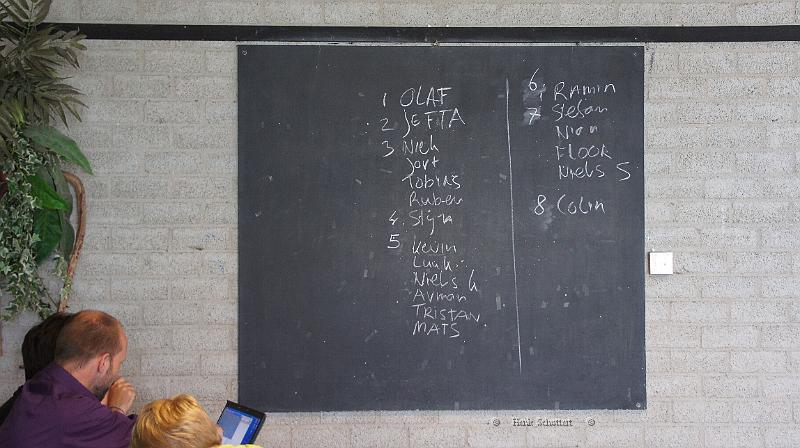 1 OLAF
2 JETTA
3 Niek
Jort
Tobias
Ruben
4. Stijn
5
Kevin
Luuk
Niels k
Ayman
TRISTAN
MATS
6
Ramin
7 Stefan
FLOOR
Niels S
8 Colin
© Henk Schuttert ©